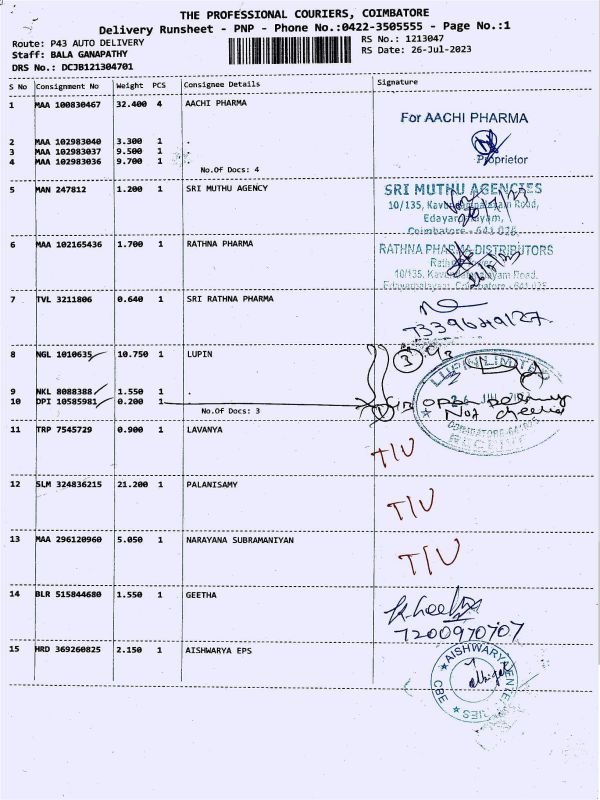 THE PROFESSIONAL COURIERS, COIMBATORE
Delivery Runsheet - PNP - Phone No.:0422-3505555 - Page No.:1
Route: P43 AUTO DELIVERY
Staff: BALA GANAPATHY
DRS No.: DCJB121304701
RS No.: 1213047
RS Date: 26-Jul-2023
S No Consignment No Weight PCS Consignee Details Signature
1 MAA 100830467 32.400 4 AACHI PHARMA
For AACHI PHARMA
2 MAA 102983040 3.300 1 .
3 MAA 102983037 9.500 1 .
4 MAA 102983036 9.700 1 .
Proprietor
No.Of Docs: 4
5 MAN 247812 1.200 1 SRI MUTHU AGENCY
SRI MUTHU AGENCIES
10/135, Kavundampalayam Road,
Edayarpalayam,
Coimbatore - 641 025.
6 MAA 102165436 1.700 1 RATHNA PHARMA
RATHNA PHARMA DISTRIBUTORS
10/135, Kavundampalayam Road.
Edayarpalayam, Coimbatore - 641 025
7 TVL 3211806 0.640 1 SRI RATHNA PHARMA
7339649127
8 NGL 1010635 10.750 1 LUPIN
3
LUPIN LIMITED
9 NKL 8088388 1.550 1 .
10 DPI 10585981 0.200 1 .
No.Of Docs: 3
open Delivery
Not cheend
COIMBATORE-641025
RECEIVE
11 TRP 7545729 0.900 1 LAVANYA
T/U
12 SLM 324836215 21.200 1 PALANISAMY
T/U
13 MAA 296120960 5.050 1 NARAYANA SUBRAMANIYAN
T/U
14 BLR 515844680 1.550 1 GEETHA
7200970707
15 HRD 369260825 2.150 1 AISHWARYA EPS
AISHWARYA ENTERPRISES
CBE